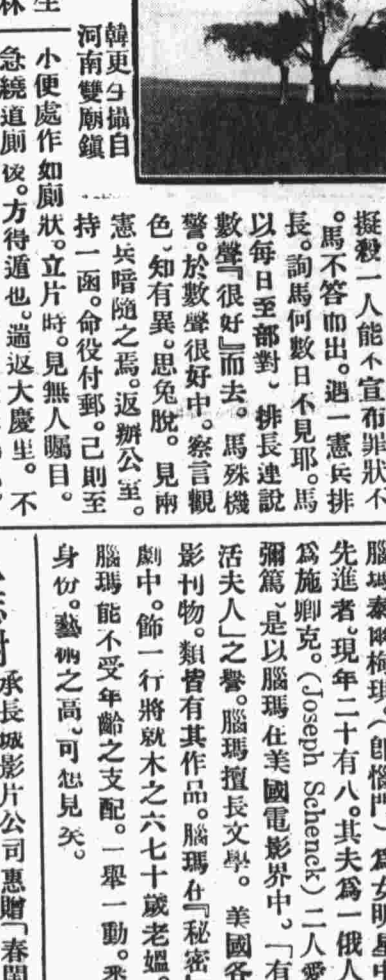 韓更生攝自
河南雙廟鎮
擬殺一人能不宣布罪狀不
。馬不答而出。遇一憲兵排
長。詢馬何數日不見耶。馬
以每日至部對、排長連說
數聲『很好』而去。馬殊機
警。於數聲很好中。察言觀
色、知有異。思兔脫。見兩
憲兵暗隨之焉。返辦公室。
持一函。命役付郵。己則至
小便處作如廁狀。立片時。見無人矚目。
急繞道厠後。方得遁也。遄返大慶里。不
先進者、現年二十有八。其夫爲一俄人
爲施卿克。(Joseph Schenck)二人愛
彌篤、是以腦瑪在美國電影界中、「有
活夫人」之譽。腦瑪擅長文學。美國各
影刊物。類皆有其作品。腦瑪在『秘密』
劇中。飾一行將就木之六七十歲老嫗。
腦瑪能不受年齡之支配。一舉一動。悉
身份。藝術之高、可想見矣。
承長城影片公司惠贈「春閨